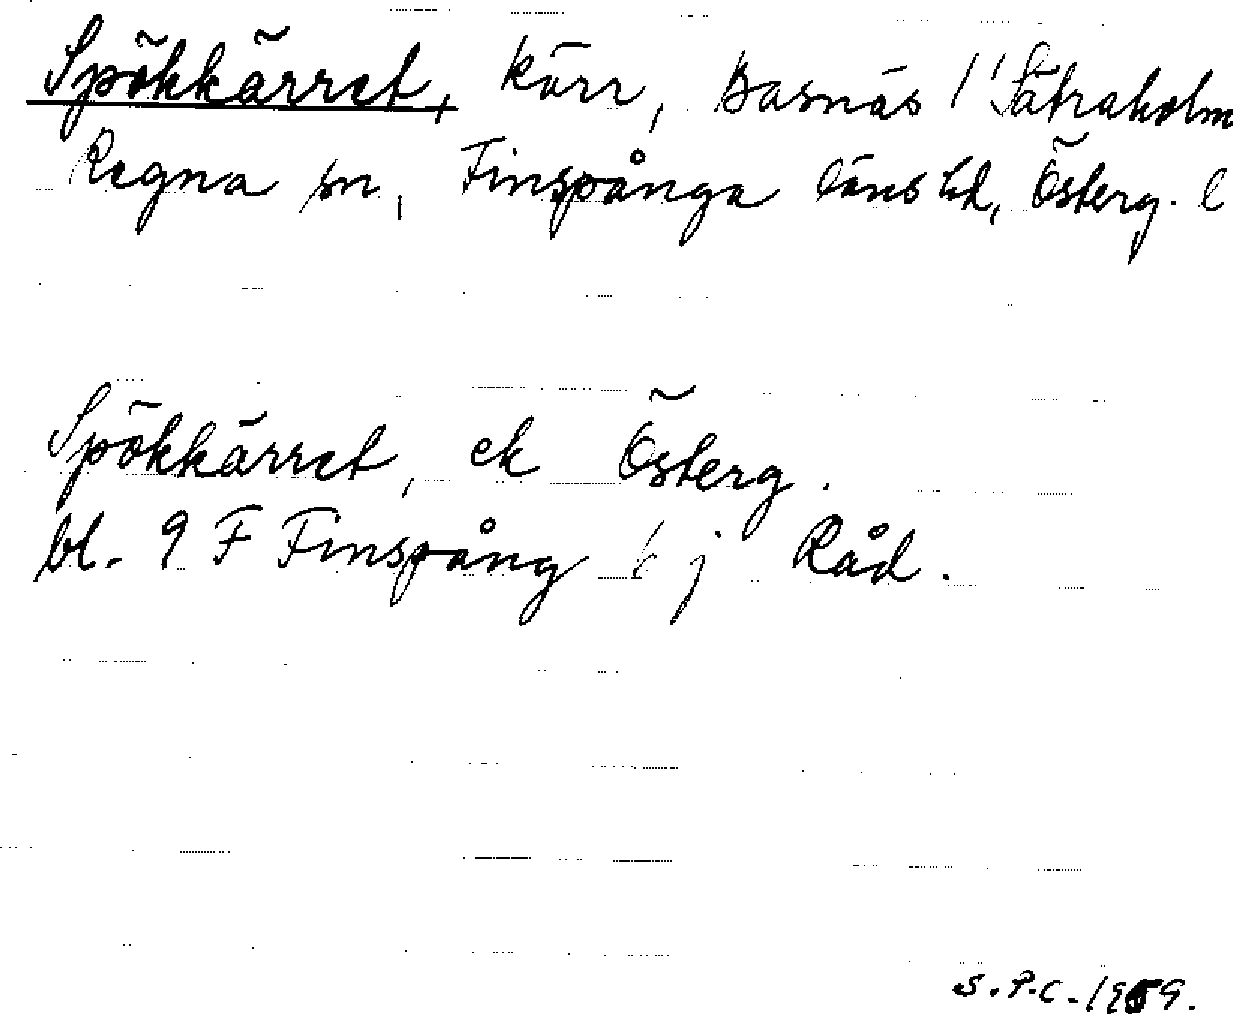 Spökkärret, kärr, Basnäs 1' Sätraholm
Regna sn, Finspånga läns hd, Österg. l
Spökkärret, ek Österg.
bl. 9 F Finspång b j Råd.
S.P.C. 1959.